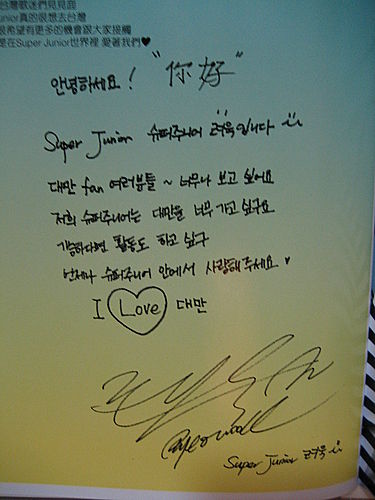 台灣歌迷們見見面
unior真的很想去台灣
很希望有更多的機會跟大家接觸
是在Super Junior世界裡 愛著我們♥
안녕하세요! "你好"
Super Junior 슈퍼주니어 려욱입니다
대만 fan 여러분들 ~ 너무나 보고 싶어요
저희 슈퍼주니어는 대만을 너무 가고 싶구요
가능하다면 활동도 하고 싶구
언제나 슈퍼주니어 안에서 사랑해주세요 ♥
I Love 대만
Ryeowook
Super Junior 려욱